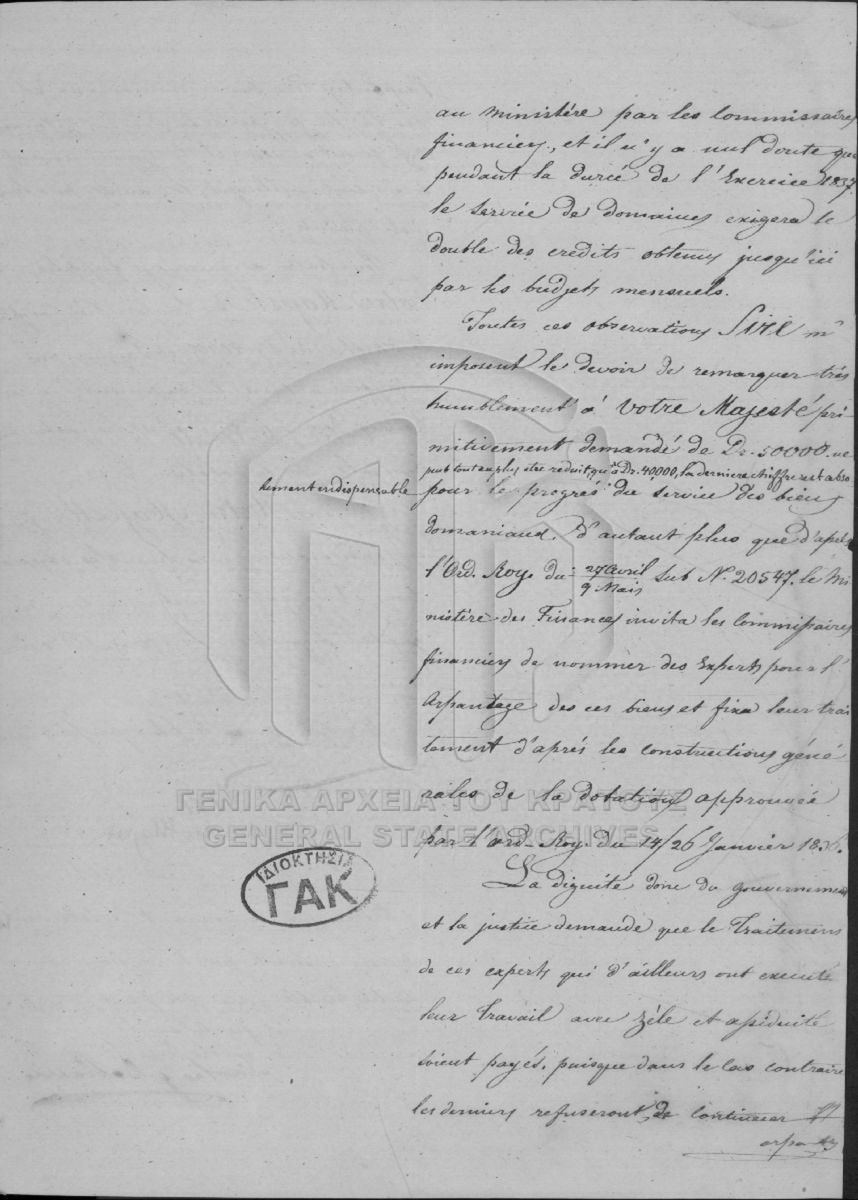 au ministére par les Commissaires
financiers, et il n'y a nul doute que
pendant la durée de l'Exercice 1837
le service de domaines exigera le
double des credits obtenus jusqu'ici
par les budgets mensuels.
Toutes ces observations Sire m'
imposent le devoir de remarquer trés
humblement á Votre Majesté pri
mitivement demandé de Dr. 50000. ne
peut tout au plus etre reduit, qu'à Dr. 40,000, la derniere chiffre est abso
lument indispensable pour le progrés du service des biens
domaniaux, d'autant plus que d'aprés
l'Ord. Roy. du 27 Avril / 9 Mais sub N. 20547. le Mi
nistére des Finances invita les Commissaires
financiers de nommer des Experts pour l'
Arpantage des ces biens et fixa leur trai
tement d'aprés les constructions géné
rales de la dotation approuvée
par l'Ord. Roy. du 14/26 Janvier 1836.
La dignité donc du gouvernement
et la justice demande que le Traitemens
de ces experts qui d'ailleurs ont executé
leur Travail avec zéle et assiduité
soient payés, puisque dans le cas contraire
les derniers refuseront de continuer l'
arpan
ΓΕΝΙΚΑ ΑΡΧΕΙΑ ΤΟΥ ΚΡΑΤΟΥΣ
GENERAL STATE ARCHIVES
ΙΔΙΟΚΤΗΣΙΑ
ΓΑΚ